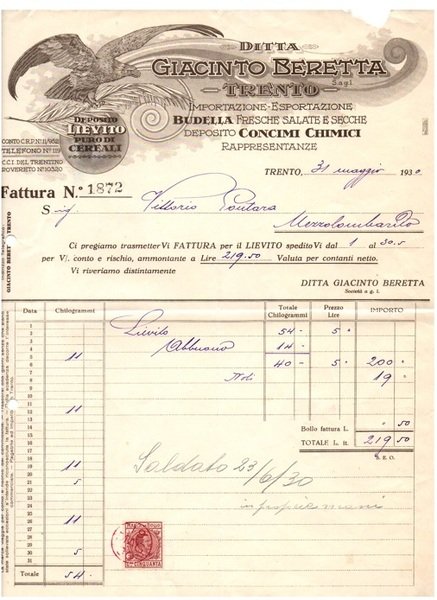 DITTA
GIACINTO BERETTA
S.a.g.l.
TRENTO
IMPORTAZIONE - ESPORTAZIONE
BUDELLA FRESCHE SALATE E SECCHE
DEPOSITO CONCIMI CHIMICI
RAPPRESENTANZE
DEPOSITO
LIEVITO
PURO DI
CEREALI
CONTO C.R.P. N. 11/952
TELEFONO Nº 119
C.C.I. DEL TRENTINO
ROVERETO Nº 10320
TRENTO, 31 maggio 1930
Fattura N.º 1872
Sig Vittorio Pontara
Mezzolombardo
Ci pregiamo trasmetterVi FATTURA per il LIEVITO spedito Vi dal 1 al 30.5
per V/. conto e rischio, ammontante a Lire 219.50 Valuta per contanti netto.
Vi riveriamo distintamente
DITTA GIACINTO BERETTA
Società a g. l.
GIACINTO BERETTA TRENTO
Data Chilogrammi Totale Chilogrammi Prezzo Lire IMPORTO
1 Lievito 54 - 5
2
3 Abbuono 14 -
4
5 11 40 - 5 200
6 Noli 19
7
8
9
10
11
12
13 11
Bollo fattura L. 50
TOTALE L. it. 219 50
S. E. O.
20 11
21 5
26 11
30 5
31
Totale 54.
Saldato 23/6/30
in proprie mani
CINQUANTA